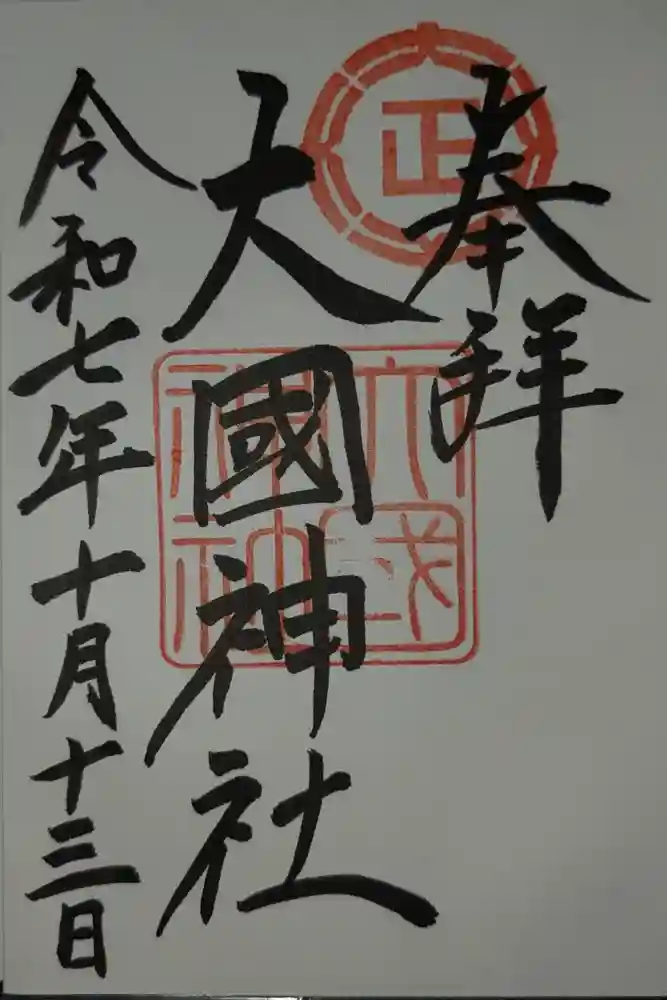 奉拝
大國神社
令和七年十月十三日
正
大國
神社